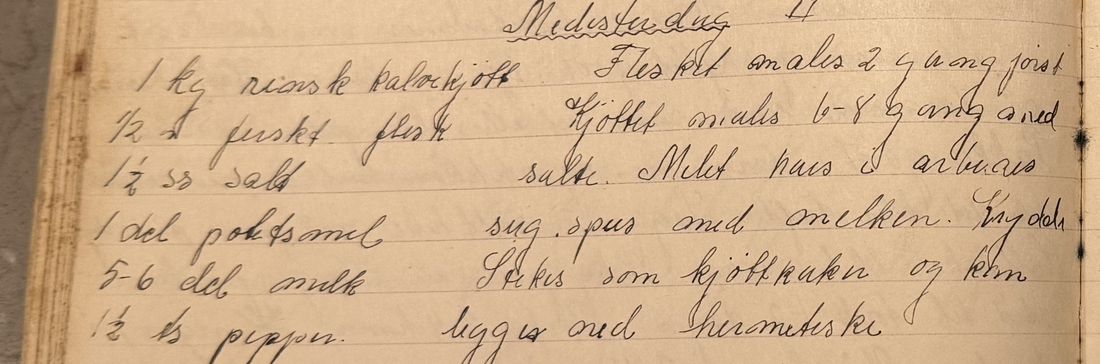 Medisterdeig 11
1 kg rensk kalvekjøtt Flesket males 2 gang først
1/2 " ferskt flesk Kjøttet males 6-8 gang med
1 1/2 ss salt salte. Melet haes i arbeides
1 del potetsmel seig, spes med melken. Krydder
5-6 del melk Stekes som kjøttkaker og kan
1 1/2 ts pepper. legges ned hermetiske